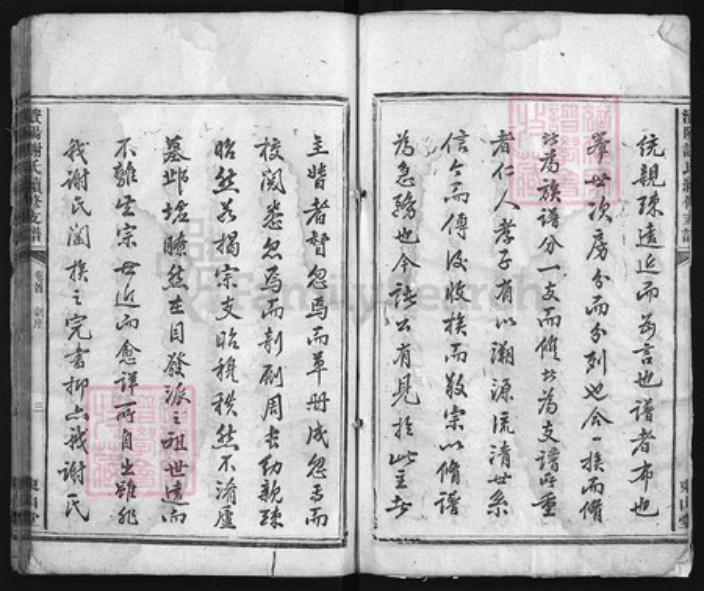 統親疎遠近而為言也譜者布也
舉世次房分而分列也合一族而脩
此為族譜分一支而脩此為支譜所重
者仁人孝子有以溯源流清世系
信今而傳後收族而敬宗以脩譜
為急務也今諸公有見於此主者
主督者督忽焉而草冊成忽焉而
校閱悉忽焉而剞劂周長幼親疎
昭然若揭宗支昭穆秩然不淆廬
墓邱墟瞭然在目發派之祖世遠而
不離生宗世近而愈詳所自出雖非
我謝氏闔族之完書抑亦我謝氏
資陽謝氏續修支譜
卷首 新序
三
東山堂
FamilySearch